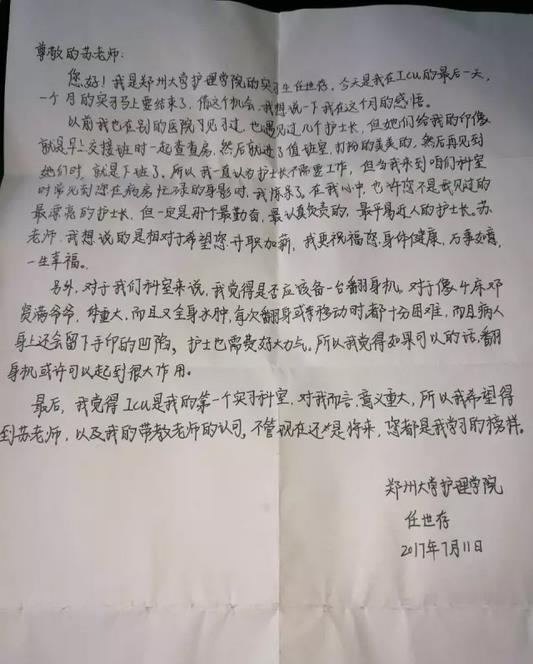 尊敬的苏老师:
您好！我是郑州大学护理学院的实习生任世存。今天是我在Icu的最后一天,
一个月的实习马上要结束了，借这个机会，我想说一下我在这个月的感悟。
以前我也在别的医院见习过，也遇见过几个护士长，但她们给我的印像
就是早上交接班时一起查查房，然后就进了值班室，打扮的美美的，然后再见到
她们时，就是下班了。所以我一直认为护士长不需要工作，但当我来到咱们科室
时常见到您在病房忙碌的身影时，我惊呆了。在我心中，也许您不是我见过的
最漂亮的护士长，但一定是那个最勤奋，最认真负责的，最平易近人的护士长。苏
老师，我想说的是相对于希望您升职加薪，我更祝福您身体健康，万事如意，
一生幸福。
另外，对于我们科室来说，我觉得是否应该备一台翻身机，对于像4床邓
贤满爷爷，体重大，而且又全身水肿，每次翻身或者移动时，都十分困难，而且病人
身上还会留下手印的凹陷，护士也需费好大力气。所以我觉得如果可以的话，翻
身机或许可以起到很大作用。
最后，我觉得Icu是我的第一个实习科室，对我而言，意义重大，所以我希望得
到苏老师，以及我的带教老师的认可，不管现在还是将来，您都是我学习的榜样。
郑州大学护理学院
任世存
2017年7月11日